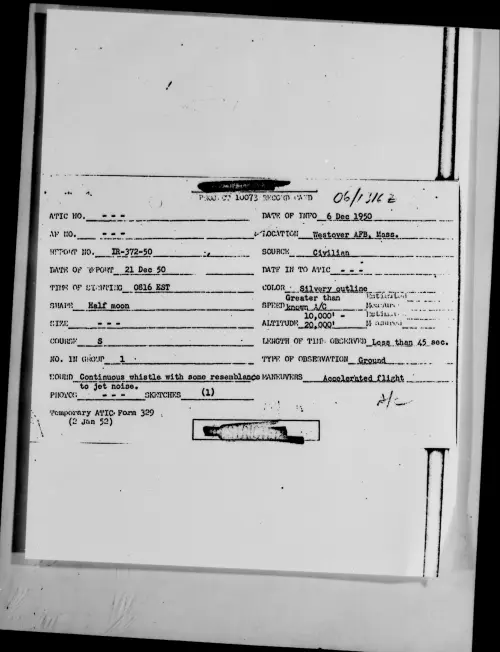 PROJECT 10073 RECORD CARD
ATIC NO. - - -
DATE OF INFO 6 Dec 1950
AF NO. - - -
LOCATION Westover AFB, Mass.
REPORT NO. IR-372-50
SOURCE Civilian
DATE OF REPORT 21 Dec 50
DATE IN TO ATIC - - -
TIME OF SIGHTING 0816 EST
COLOR Silvery outline
SHAPE Half moon
SPEED Greater than
known A/C
SIZE - - -
ALTITUDE 10,000' -
20,000'
COURSE S
LENGTH OF TIME OBSERVED Less than 45 sec.
NO. IN GROUP 1
TYPE OF OBSERVATION Ground
SOUND Continuous whistle with some resemblance
to jet noise.
MANEUVERS Accelerated flight
PHOTOS - - - SKETCHES (1)
A/C
Temporary ATIC Form 329
(2 Jan 52)